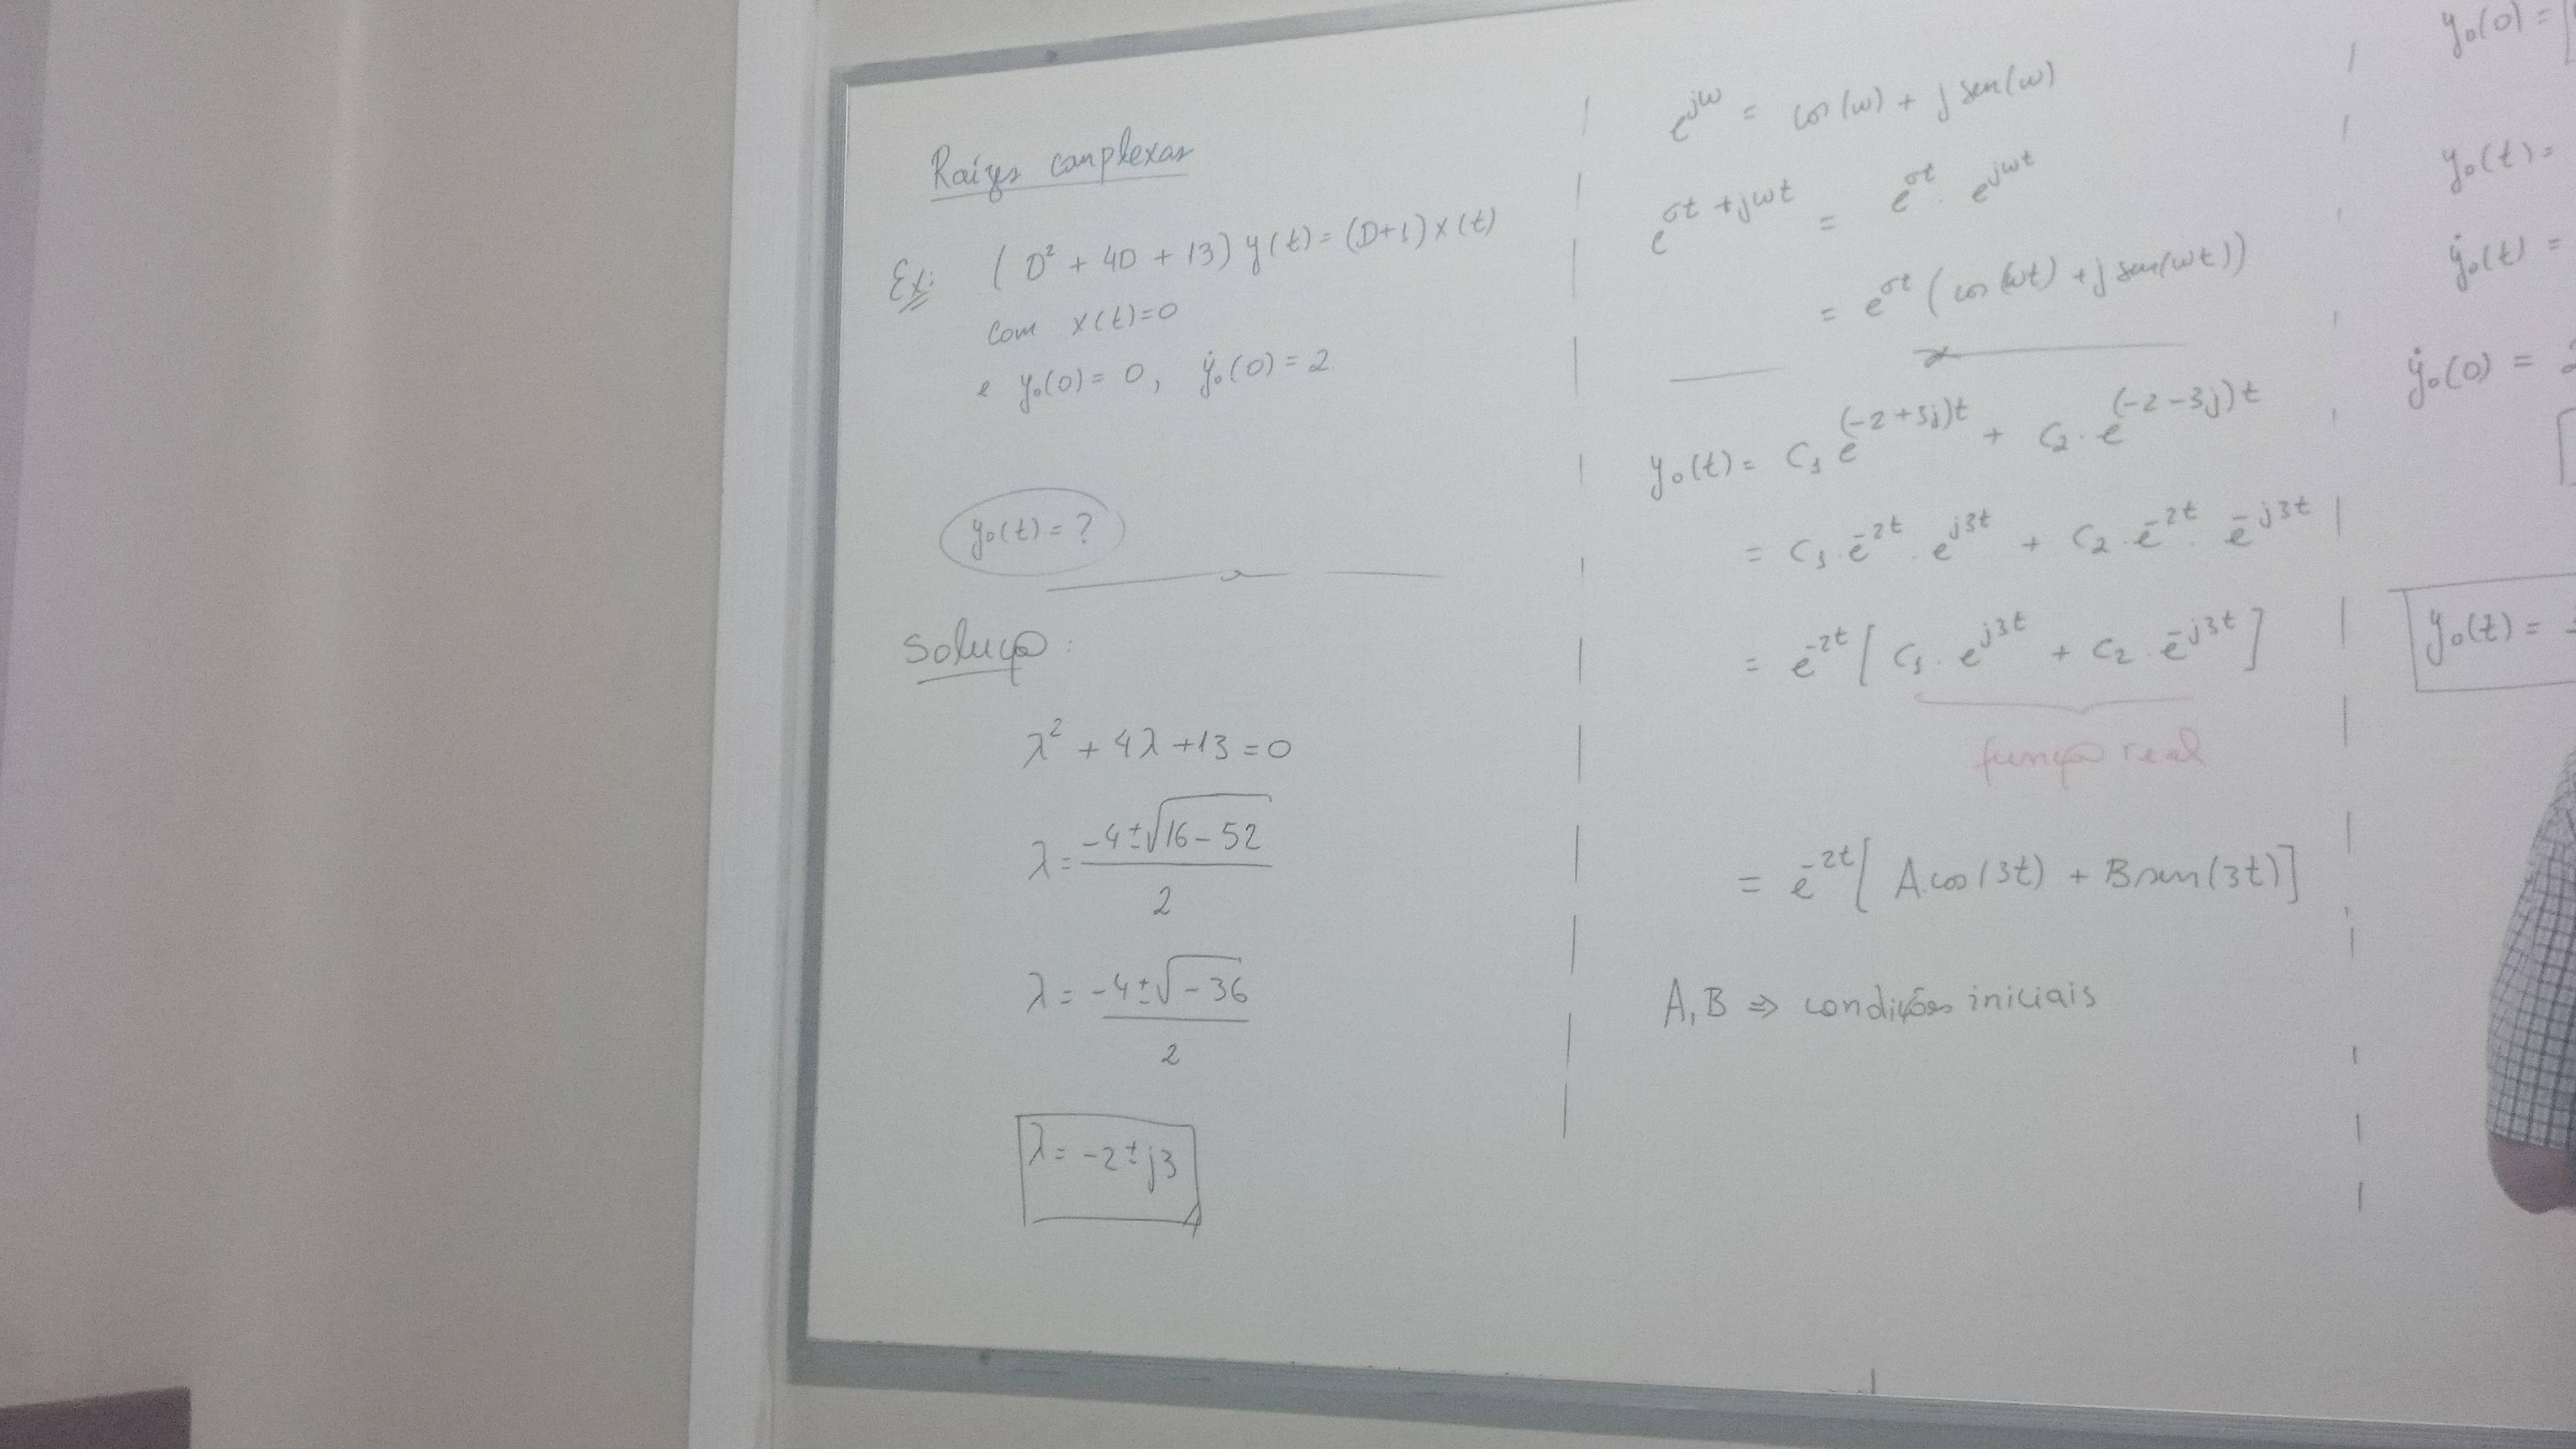 Raízes complexas
Ex: (D² + 4D + 13) y(t) = (D+1) x(t)
com x(t)=0
e y₀(0) = 0, ẏ₀(0) = 2
y₀(t) = ?
Solução:
λ² + 4λ + 13 = 0
λ = (-4 ± √(16 - 52)) / 2
λ = (-4 ± √(-36)) / 2
λ = -2 ± j3
e^(jω) = cos(ω) + j sen(ω)
e^(σt + jωt) = e^(σt) . e^(jωt)
= e^(σt) (cos(ωt) + j sen(ωt))
y₀(t) = C₁ e^((-2+3j)t) + C₂ . e^((-2-3j)t)
= C₁ . e^(-2t) . e^(j3t) + C₂ . e^(-2t) . e^(-j3t)
= e^(-2t) [ C₁ . e^(j3t) + C₂ . e^(-j3t) ]
função real
= e^(-2t) [ A cos(3t) + B sen(3t) ]
A, B ⇒ condições iniciais
y₀(0) =
y₀(t) =
ẏ₀(t) =
ẏ₀(0) =
y₀(t) =